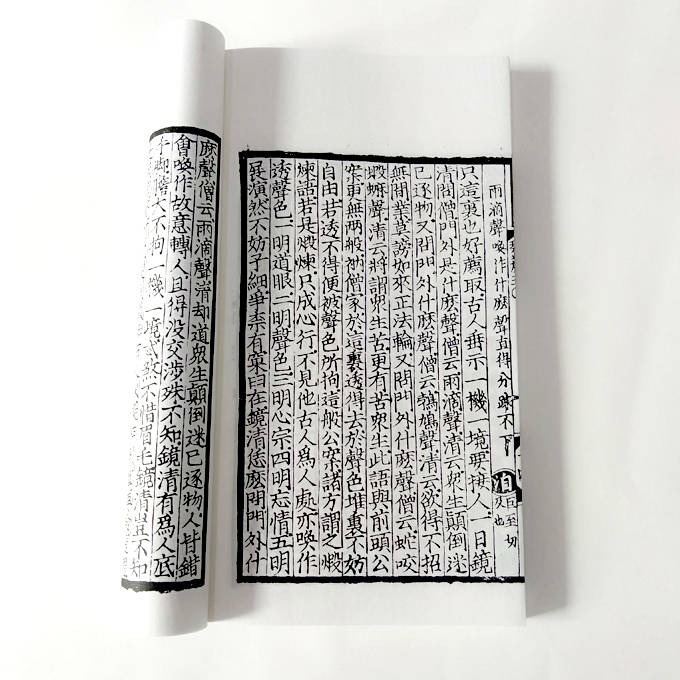 雨滴聲喚作什麼聲直得分踈不下
只這裏也好薦取古人垂示一機一境要接人一日鏡
清問僧門外是什麼聲僧云雨滴聲清云眾生顛倒迷
己逐物又問門外什麼聲僧云鵓鳩聲清云欲得不招
無間業莫謗如來正法輪又問門外什麼聲僧云蛇咬
蝦蟆聲清云將謂眾生苦更有苦眾生此語與前頭公
案更無兩般衲僧家於這裏透得去於聲色堆裏不妨
自由若透不得便被聲色所拘這般公案諸方謂之煅
煉語若是煅煉只成心行不見他古人爲人處亦喚作
透聲色一明道眼二明聲色三明心宗四明忘情五明
展演然不妨子細爭柰有窠臼在鏡清恁麼問門外什
麼聲僧云雨滴聲清却道眾生顛倒迷己逐物人皆錯
會喚作故意轉人且得沒交涉殊不知鏡清有爲人底
手脚膽大不拘一機一境忒煞不惜眉毛鏡清豈不知